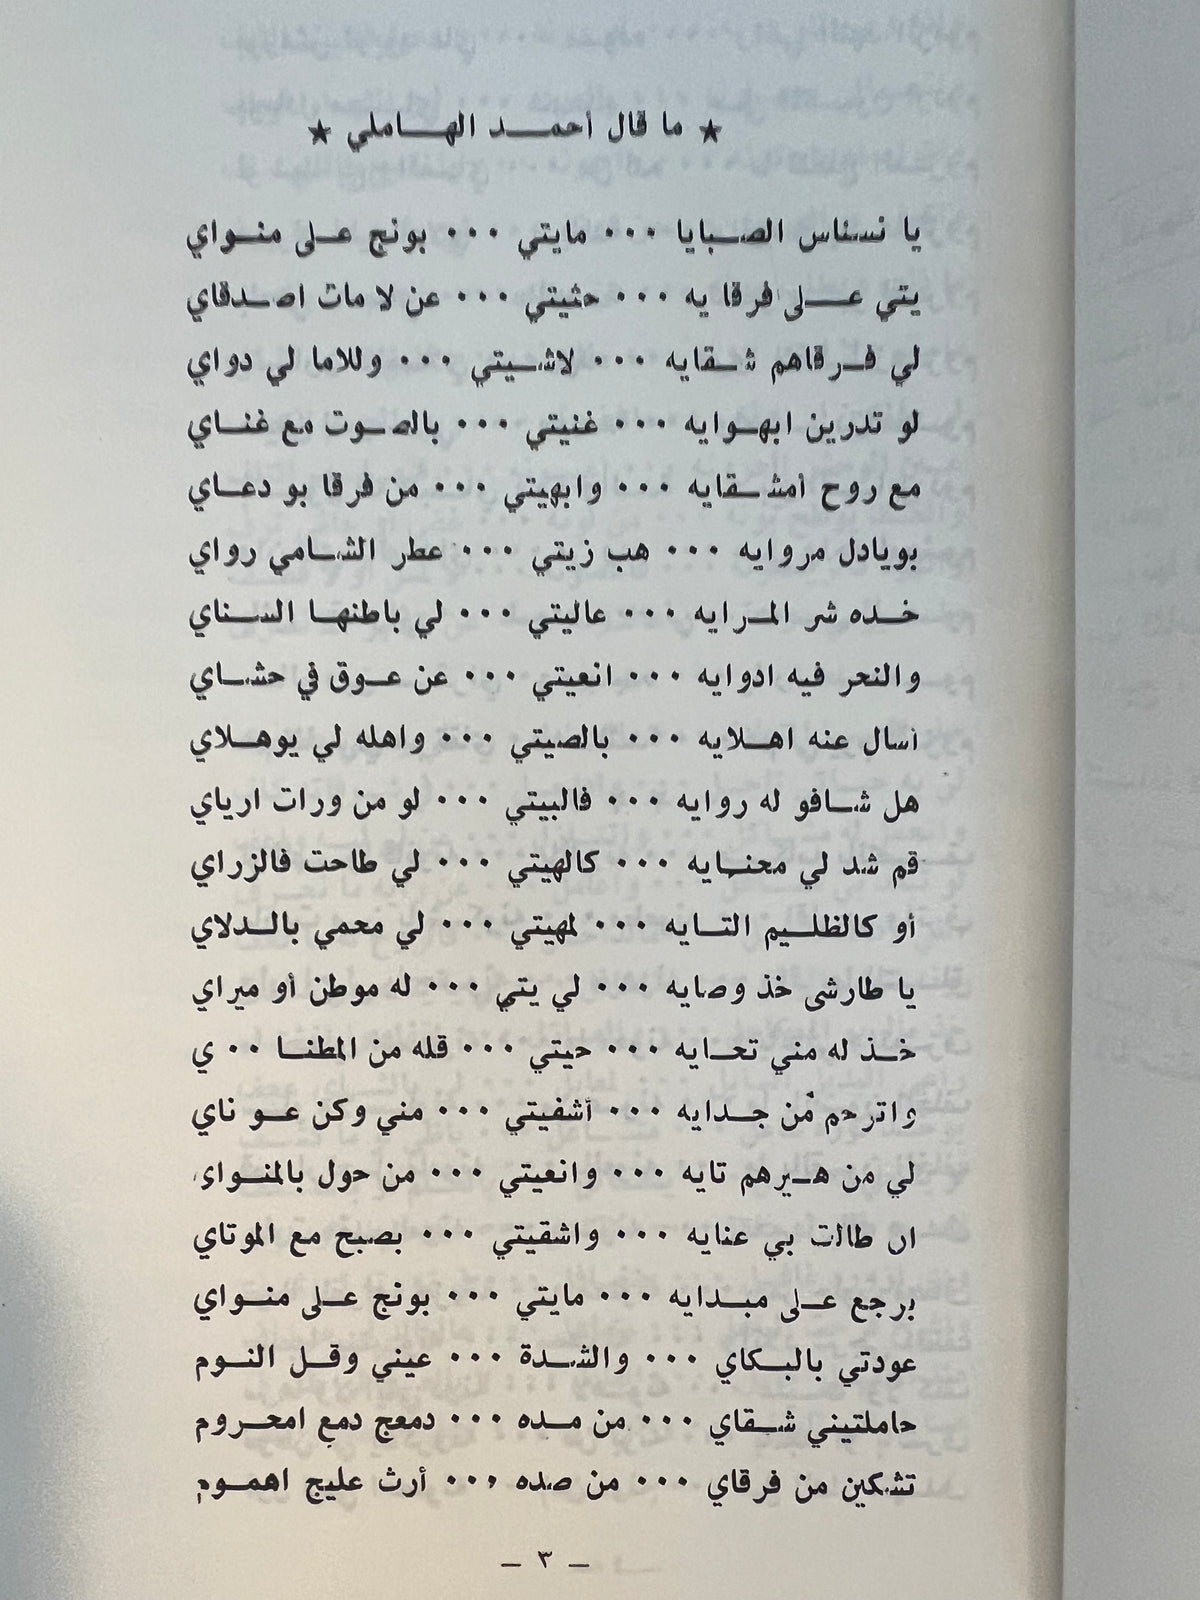 ★ ما قال أحمد الهاملي ★
يا نسناس الصبايا ٠٠٠ مايتي ٠٠٠ بونج على منواي
يتي على فرقا يه ٠٠٠ حثيتي ٠٠٠ عن لا مات اصدقاي
لي فرقاهم شقايه ٠٠٠ لاشيتي ٠٠٠ وللاما لي دواي
لو تدرين ابهوايه ٠٠٠ غنيتي ٠٠٠ بالصوت مع غناي
مع روح أمشقايه ٠٠٠ وابهيتي ٠٠٠ من فرقا بو دعاي
بويادل مروايه ٠٠٠ هب زيتي ٠٠٠ عطر الشامي رواي
خده شر المرايه ٠٠٠ عاليتي ٠٠٠ لي باطنها السناي
والنحر فيه ادوايه ٠٠٠ انعيتي ٠٠٠ عن عوق في حشاي
أسال عنه اهلايه ٠٠٠ بالصيتي ٠٠٠ واهله لي يوهلاي
هل شافو له روايه ٠٠٠ فالبيتي ٠٠٠ لو من ورات ارياي
قم شد لي محنايه ٠٠٠ كالهيتي ٠٠٠ لي طاحت فالزراي
أو كالظليم التايه ٠٠٠ لمهيتي ٠٠٠ لي محمي بالدلاي
يا طارشى خذ وصايه ٠٠٠ لي يتي ٠٠٠ له موطن أو ميراي
خذ له مني تحايه ٠٠٠ حيتي ٠٠٠ قله من المطنا ٠٠ ي
واترحم من جدايه ٠٠٠ أشفيتي ٠٠٠ مني وكن عو ناي
لي من هيرهم تايه ٠٠٠ وانعيتي ٠٠٠ من حول بالمنواي
ان طالت بي عنايه ٠٠٠ واشقيتي ٠٠٠ بصبح مع الموتاي
برجع على مبدايه ٠٠٠ مايتي ٠٠٠ بونج على منواي
عودتي بالبكاي ٠٠٠ والشدة ٠٠٠ عيني وقل النوم
حاملتيني شقاي ٠٠٠ من مده ٠٠٠ دمعج دمع امحروم
تشكين من فرقاي ٠٠٠ من صده ٠٠٠ أرث عليج اهموم
— ٣ —